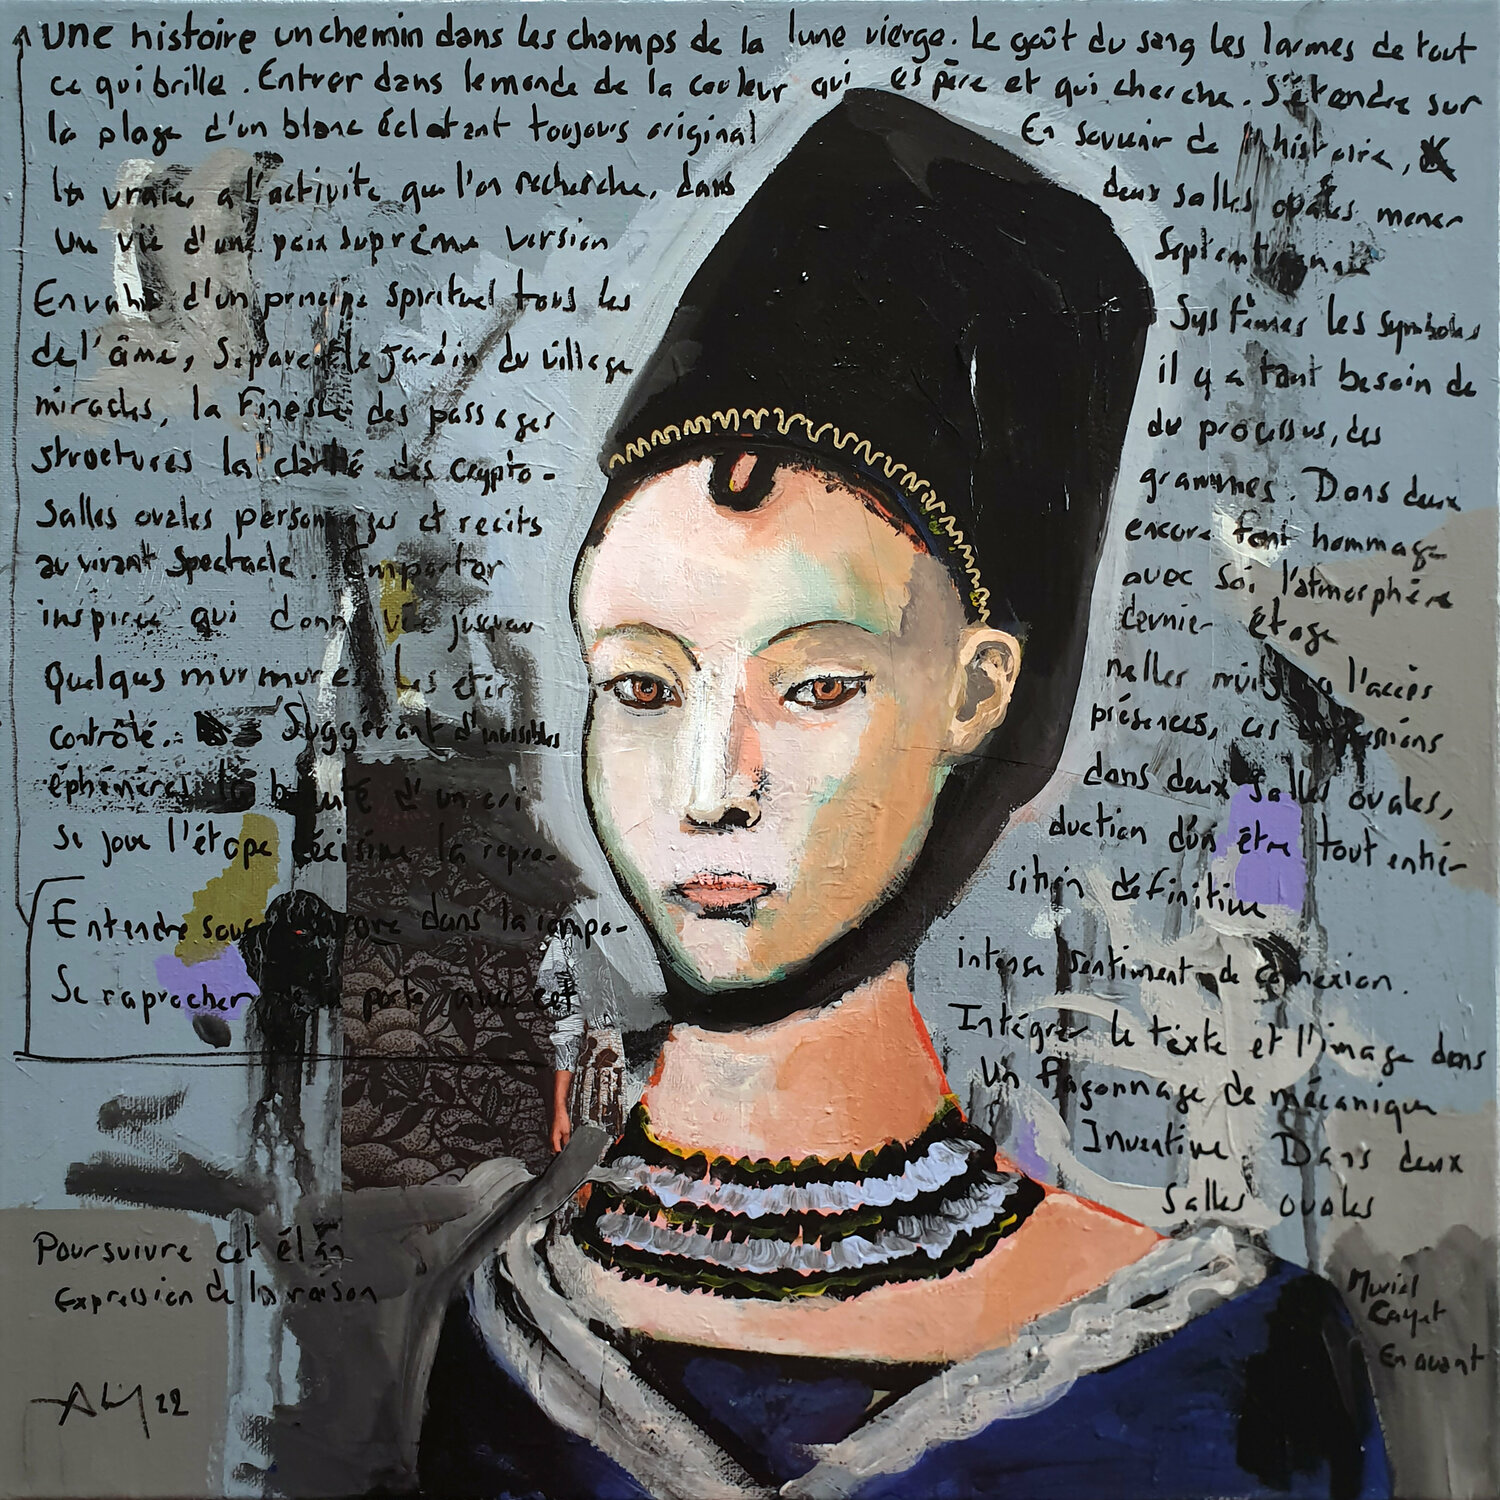 Une histoire un chemin dans les champs de la lune vierge. Le goût du sang les larmes de tout
ce qui brille. Entrer dans le monde de la couleur qui espère et qui cherche. S'étendre sur
la plage d'un blanc éclatant toujours original
En souvenir de l'histoire,
la vraie, a l'activité que l'on recherche, dans
deux salles ovales mener
un vie d'une paix suprême version
Septentrionale
Envahi d'un principe spirituel tous les
Systèmes les symboles
de l'âme, Séparer le jardin du village
il y a tant besoin de
miracles, la Finesse des passages
du processus, des
structures la clarté des crypto-
grammes. Dans deux
Salles ovales personnages et récits
encore font hommage
au vivant Spectacle. Emporter
avec soi l'atmosphère
inspirée qui donn vie jusqu'au
dernier étage
Quelques murmures Les étir
nelles nuits a l'accès
contrôlé. Suggérant d'invisibles
présences, ces
éphémères la beauté d'un cri
dans deux salles ovales,
Se joue l'étape décisive la repro-
duction d'un être tout entié-
Entendre sous dans la compo-
sition définitive
Se raprocher de la porte avec cet
intense sentiment de connexion.
Intégrer le texte et l'image dans
Un façonnage de mécanique
Inventive. Dans deux
Salles ovales
Poursuivre cet élan
Expression de la raison
Muriel
Cayet
En avant
22